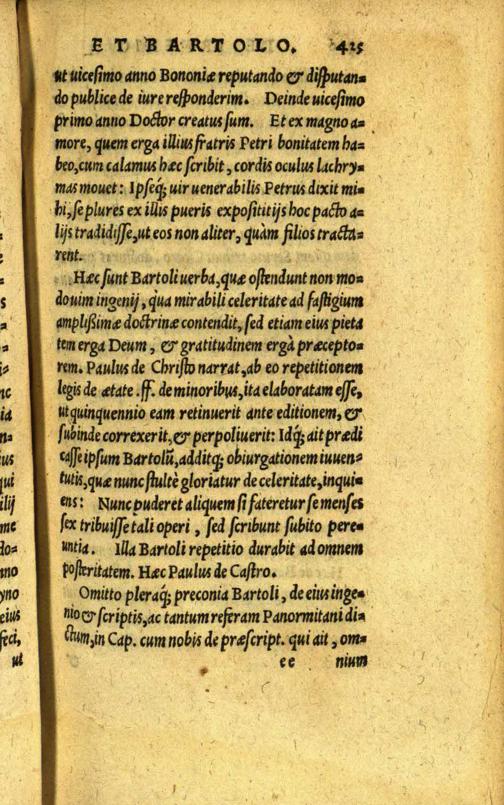 ET BARTOLO. 425
ut uiceſimo anno Bononiæ reputando & diſputan=
do publice de iure reſponderim. Deinde uiceſimo
primo anno Doctor creatus ſum. Et ex magno a=
more, quem erga illius fratris Petri bonitatem ha=
beo, cum calamus hæc ſcribit, cordis oculus lachry=
mas mouet: Ipſeq́; uir uenerabilis Petrus dixit mi=
hi, ſe plures ex illis pueris expoſititijs hoc pacto a=
lijs tradidiſſe, ut eos non aliter, quàm filios tracta=
rent.
Hæc ſunt Bartoli uerba, quæ oſtendunt non mo=
do uim ingenij, qua mirabili celeritate ad faſtigium
amplißimæ doctrinæ contendit, ſed etiam eius pieta
tem erga Deum, & gratitudinem ergà præcepto=
rem. Paulus de Chriſto narrat, ab eo repetitionem
legis de ætate .ff. de minoribus, ita elaboratam eſſe,
ut quinquennio eam retinuerit ante editionem, &
ſubinde correxerit, & perpoliuerit: Idq́; ait prædi
caſſe ipſum Bartolū, additq́; obiurgationem iuuen=
tutis, quæ nunc ſtultè gloriatur de celeritate, inqui=
ens: Nunc puderet aliquem ſi fateretur ſe menſes
ſex tribuiſſe tali operi, ſed ſcribunt ſubito pere=
untia. Illa Bartoli repetitio durabit ad omnem
poſteritatem. Hæc Paulus de Caſtro.
Omitto pleraq́; preconia Bartoli, de eius inge=
nio & ſcriptis, ac tantum referam Panormitani di=
ctum, in Cap. cum nobis de præſcript. qui ait, om=
ee nium
s
nc
ia
n=
ius
qui
ilij
me
do=
nno
yno
eius
feci,
ut